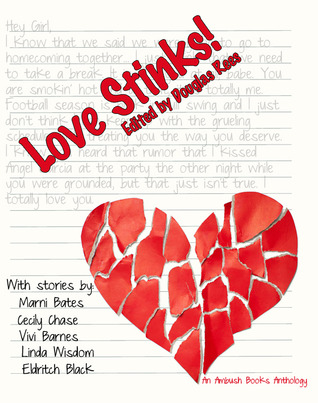 Hey Girl,
I know that we said we were to go to
homecoming together. I just we need
to take a break. It babe. You
are smokin' hot totally me.
Football season is swing and I just
don't think with the grueling
schedule treating you the way you deserve.
I heard that rumor that I kissed
Angel at the party the other night while
you were grounded, but that just isn't true. I
totally love you.
Love Stinks!
Edited by Douglas Rees
With stories by:
Marni Bates
Cecily Chase
Vivi Barnes
Linda Wisdom
Eldritch Black
An Ambush Books Anthology